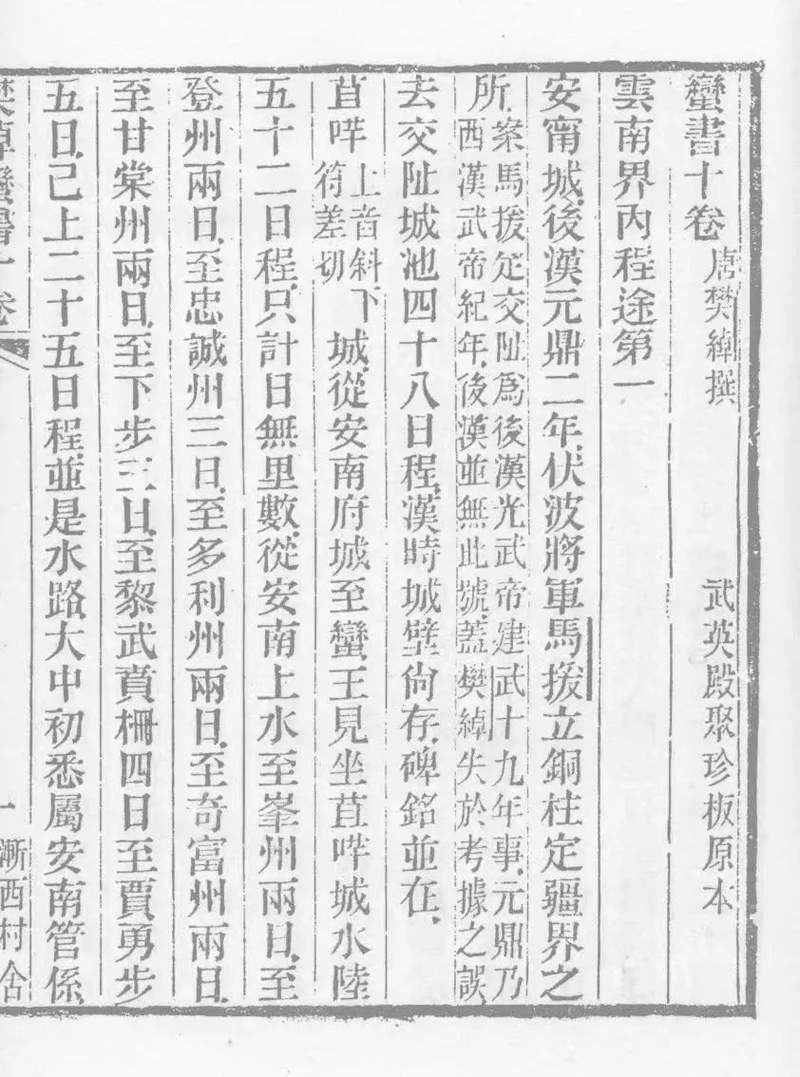 蠻書十卷 唐樊綽撰 武英殿聚珍板原本
雲南界內程途第一
安甯城後漢元鼎二年伏波將軍馬援立銅柱定疆界之
所案馬援定交阯爲後漢光武帝建武十九年事元鼎乃
西漢武帝紀年後漢並無此號蓋樊綽失於考據之誤
去交阯城池四十八日程漢時城壁尙存碑銘並在
苴哶上音斜下
符差切
城從安南府城至蠻王見坐苴哶城水陸
五十二日程只計日無里數從安南上水至峯州兩日至
登州兩日至忠誠州三日至多利州兩日至奇富州兩日
至甘棠州兩日至下步三日至黎武賁柵四日至賈勇步
五日已上二十五日程並是水路大中初悉屬安南管係
樊綽蠻書十卷 一 漸西村舍